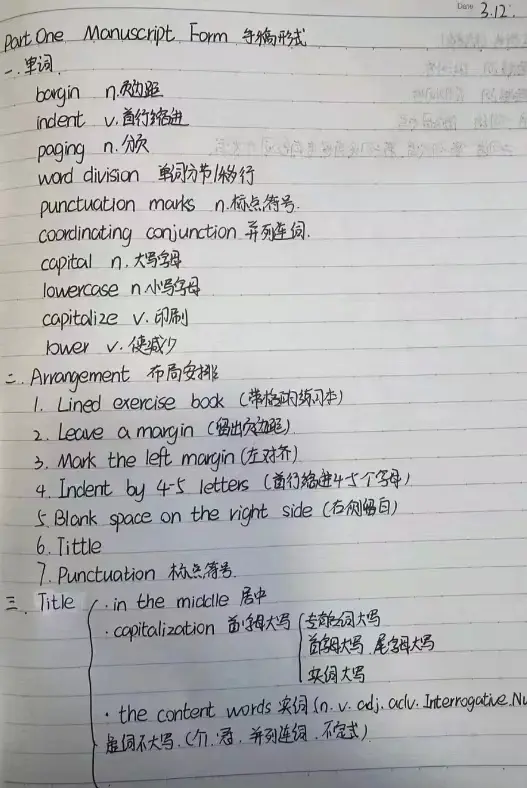 Date 3.12.
Part One Manuscript Form 手稿形式
一. 单词
bargin n.页边距
indent v.首行缩进
paging n.分页
word division 单词分节/移行
punctuation marks n.标点符号.
coordinating conjunction 并列连词.
capital n.大写字母
lowercase n 小写字母
capitalize v.印刷
lower v.使减少
二. Arrangement 布局安排
1. Lined exercise book (带格的练习本)
2. Leave a margin (留出页边距)
3. Mark the left margin (左对齐)
4. Indent by 4-5 letters (首行缩进4-5个字母)
5. Blank space on the right side (右侧留白)
6. Tittle
7. Punctuation 标点符号.
三. Title
· in the middle 居中
· capitalization 首字母大写
专有名词大写
首字母大写 尾字母大写
实词大写
· the content words 实词(n. v. adj. adv. Interrogative. Nu
虚词不大写.(介.冠.并列连词.不定式)